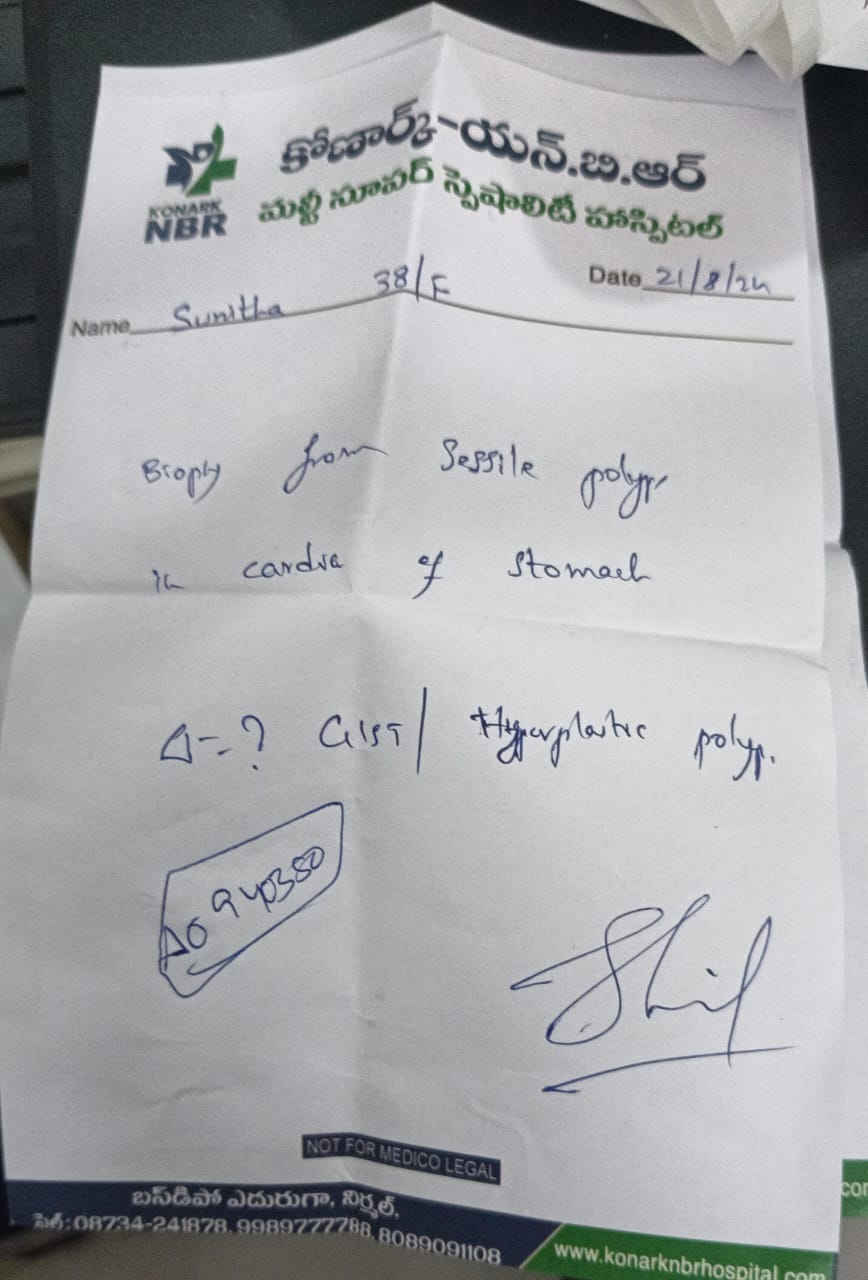 కోణార్క్-యన్.బి.ఆర్
మల్టీ సూపర్ స్పెషాలిటీ హాస్పిటల్
KONARK
NBR
Date 21/8/24
Name Sunitha 38/F
Biopsy from Sessile polyp
in cardia of stomach
Δ=? GIST/ Hyperplastic polyp.
A0940380
NOT FOR MEDICO LEGAL
బస్‌డిపో ఎదురుగా, నిర్మల్.
సెల్: 08734-241878, 9989777788, 8089091108
www.konarknbrhospital.com